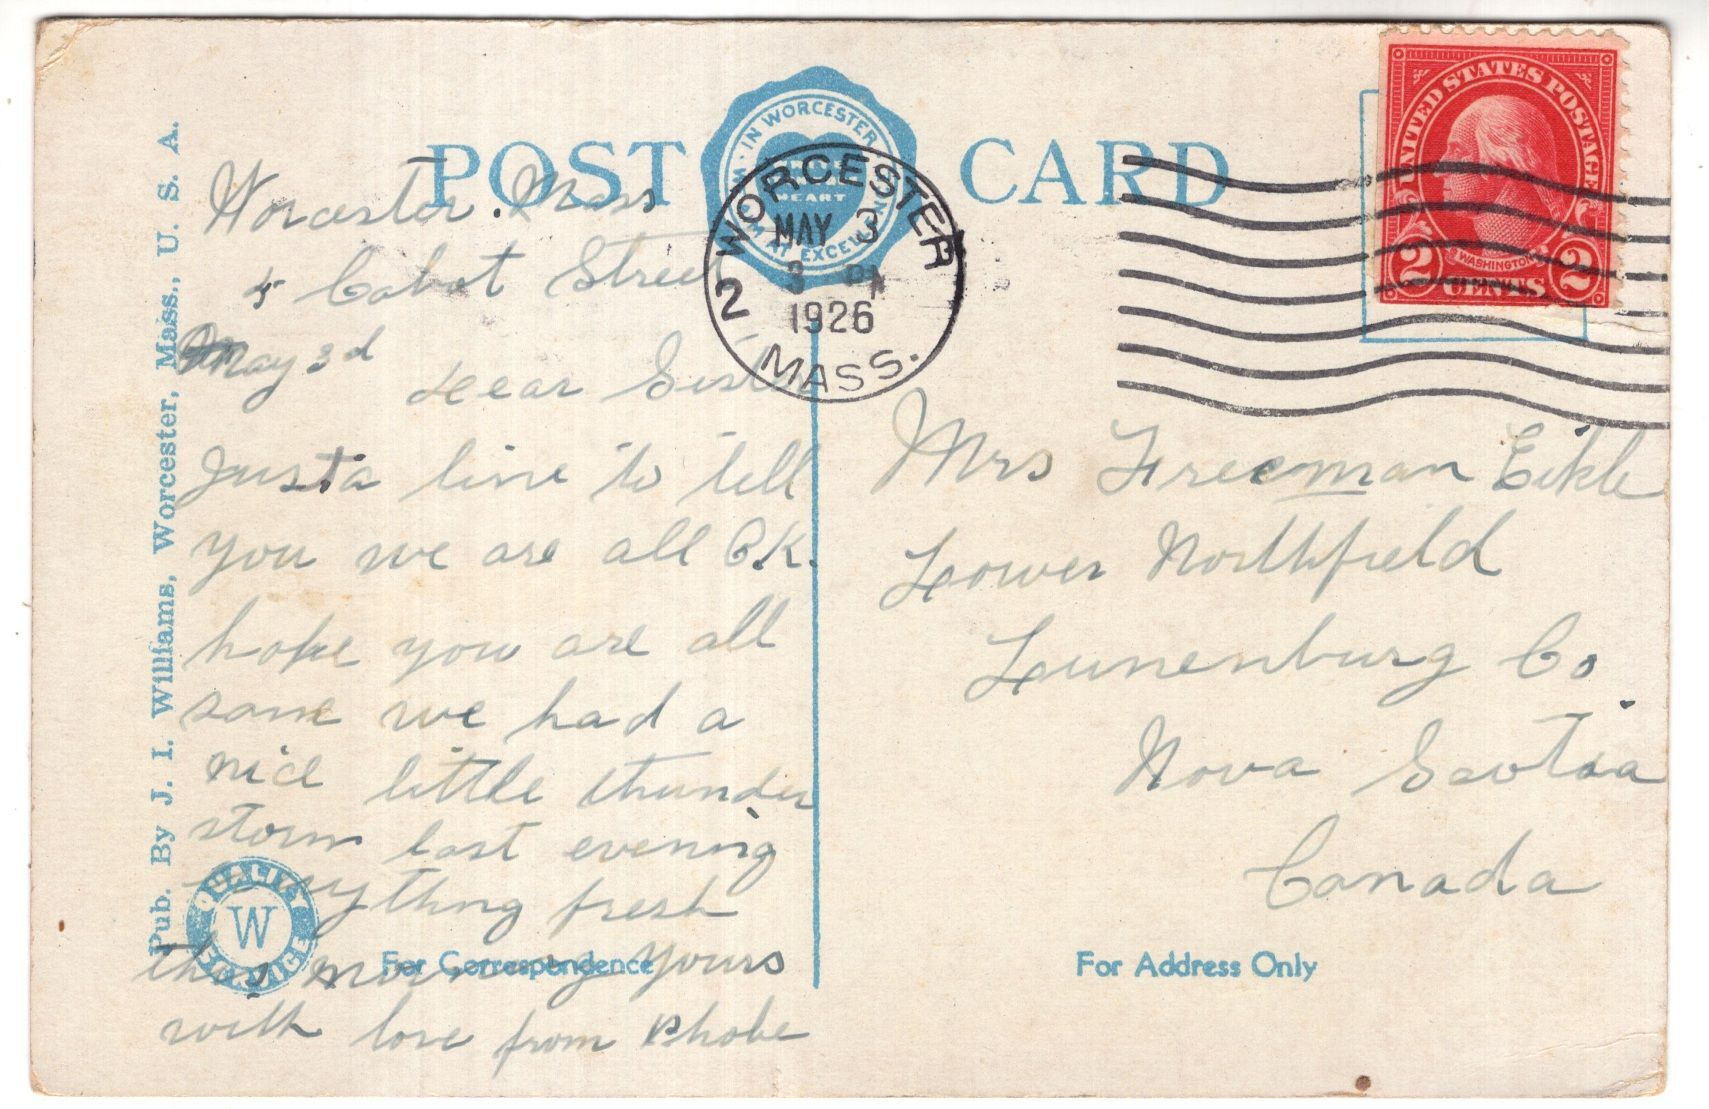 POST CARD
IN WORCESTER
WORCESTER
MAY 3
3 PM
1926
2
MASS.
UNITED STATES POSTAGE
WASHINGTON
2 CENTS 2
Pub. By J. I. Williams, Worcester, Mass., U. S. A.
Worcester. Mass
5 Cabot Street
May 3d
Dear Sister
Just a line to tell
you we are all O.K.
hope you are all
same we had a
nice little thunder
storm last evening
everything fresh
this morning Yours
with love from Phobe
QUALITY
W
SERVICE
For Correspondence
Mrs Freeman Eikle
Lower Northfield
Lunenburg Co
Nova Scotia
Canada
For Address Only